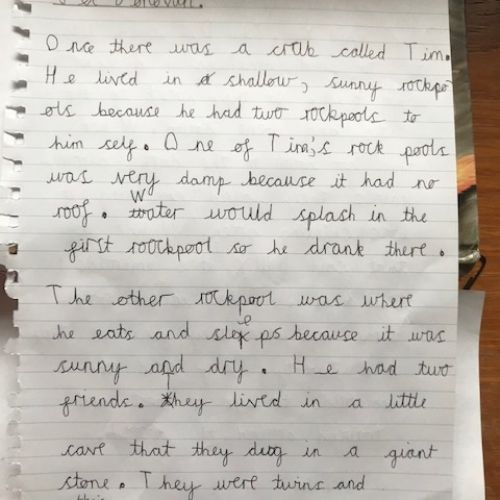 Once there was a crab called Tim.
He lived in a shallow, sunny rockpo
ols because he had two rockpools to
him self. One of Tim's rock pools
was very damp because it had no
roof. Water would splash in the
first roockpool so he drank there.
The other rockpool was where
he eats and sleeps because it was
sunny and dry. He had two
friends. They lived in a little
cave that they dug in a giant
stone. They were twins and
their